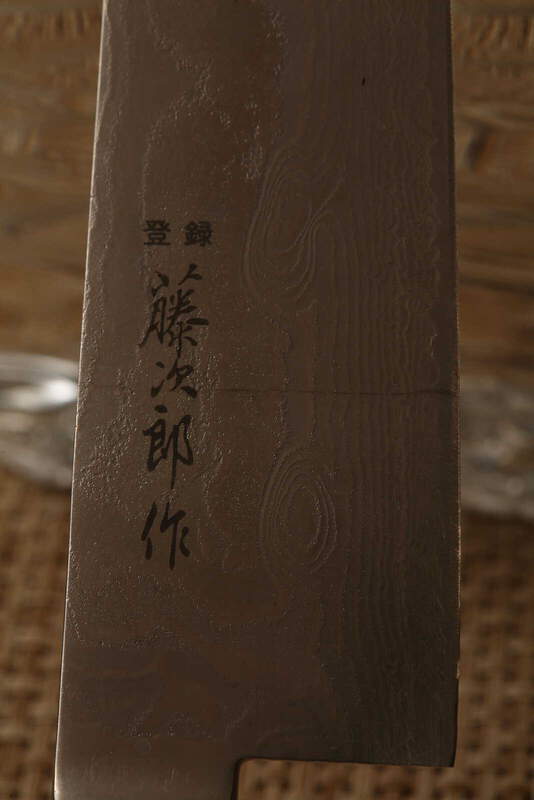 登録
藤次郎作